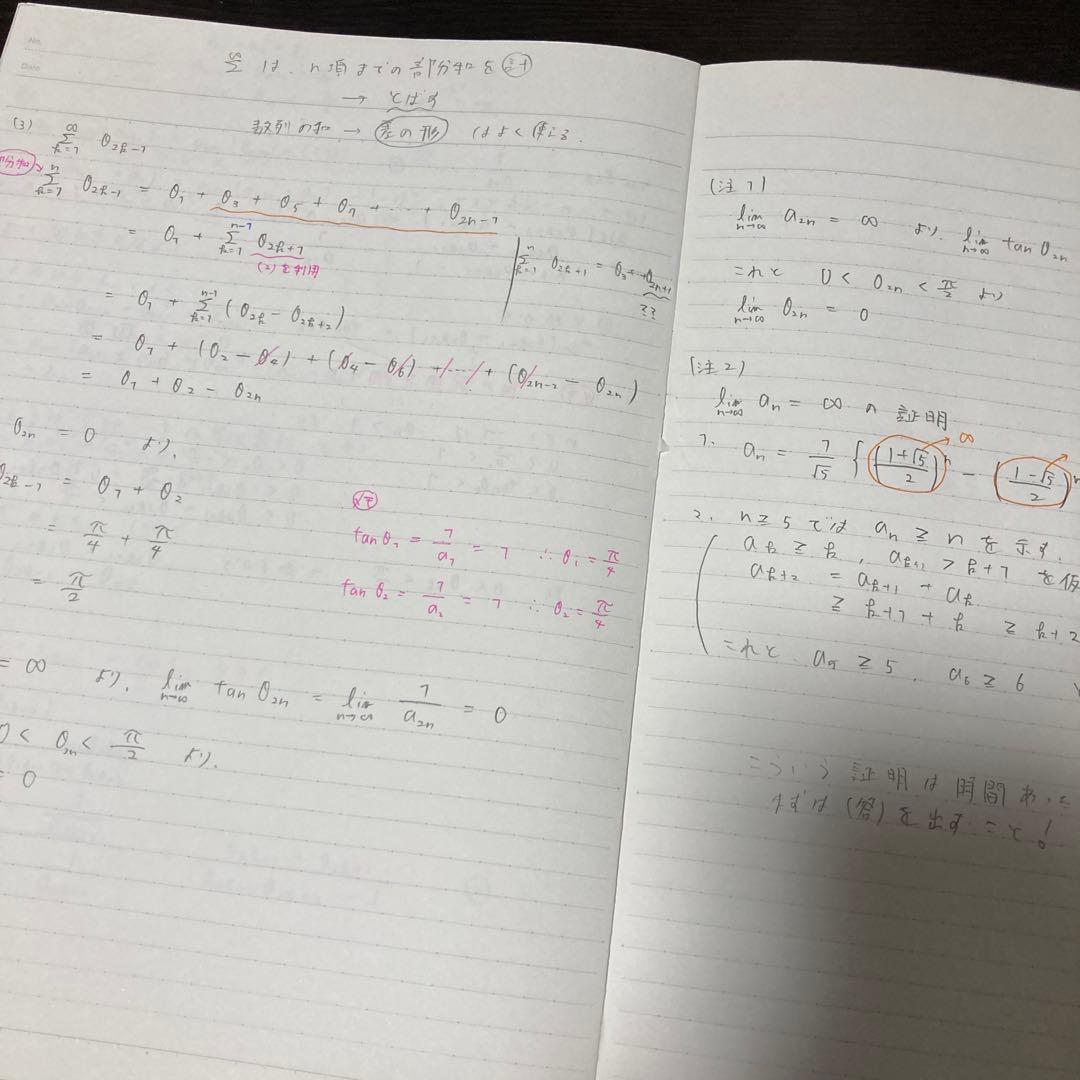 No.
Date
∞Σ は、n項までの部分和を計
→ とばす
数列の和 → 差の形 はよく使える.
(3) ∞Σk=1 θ2k-1
部分和 nΣk=1 θ2k-1 = θ1 + θ3 + θ5 + θ7 + … + θ2n-1
= θ1 + n-1Σk=1 θ2k+1
(2)を利用
nΣk=1 θ2k+1 = θ3+…θ2n+1
??
= θ1 + n-1Σk=1 (θ2k - θ2k+2)
= θ1 + (θ2 - θ4) + (θ4 - θ6) + … + (θ2n-2 - θ2n)
= θ1 + θ2 - θ2n
θ2n = 0 より、
θ2k-1 = θ1 + θ2
= π/4 + π/4
= π/2
tanθ1 = 1/a1 = 1 ∴ θ1 = π/4
tanθ2 = 1/a2 = 1 ∴ θ2 = π/4
= ∞ より、 lim n→∞ tanθ2n = lim n→∞ 1/a2n = 0
0 < θ2n < π/2 より、
= 0
(注1)
lim n→∞ a2n = ∞ より、 lim n→∞ tanθ2n
これと 0 < θ2n < π/2 より
lim n→∞ θ2n = 0
(注2)
lim n→∞ an = ∞ の証明
1. an = 1/√5 { ((1+√5)/2)^n - ((1-√5)/2)^n
∞
2. n≧5では an ≧ n を示す.
ak ≧ k, ak+1 > k+1 を仮
ak+2 = ak+1 + ak
≧ k+1 + k ≧ k+2
これと a5 ≧ 5, a6 ≧ 6
こういう証明は時間あ
まずは(答)を出すこと!